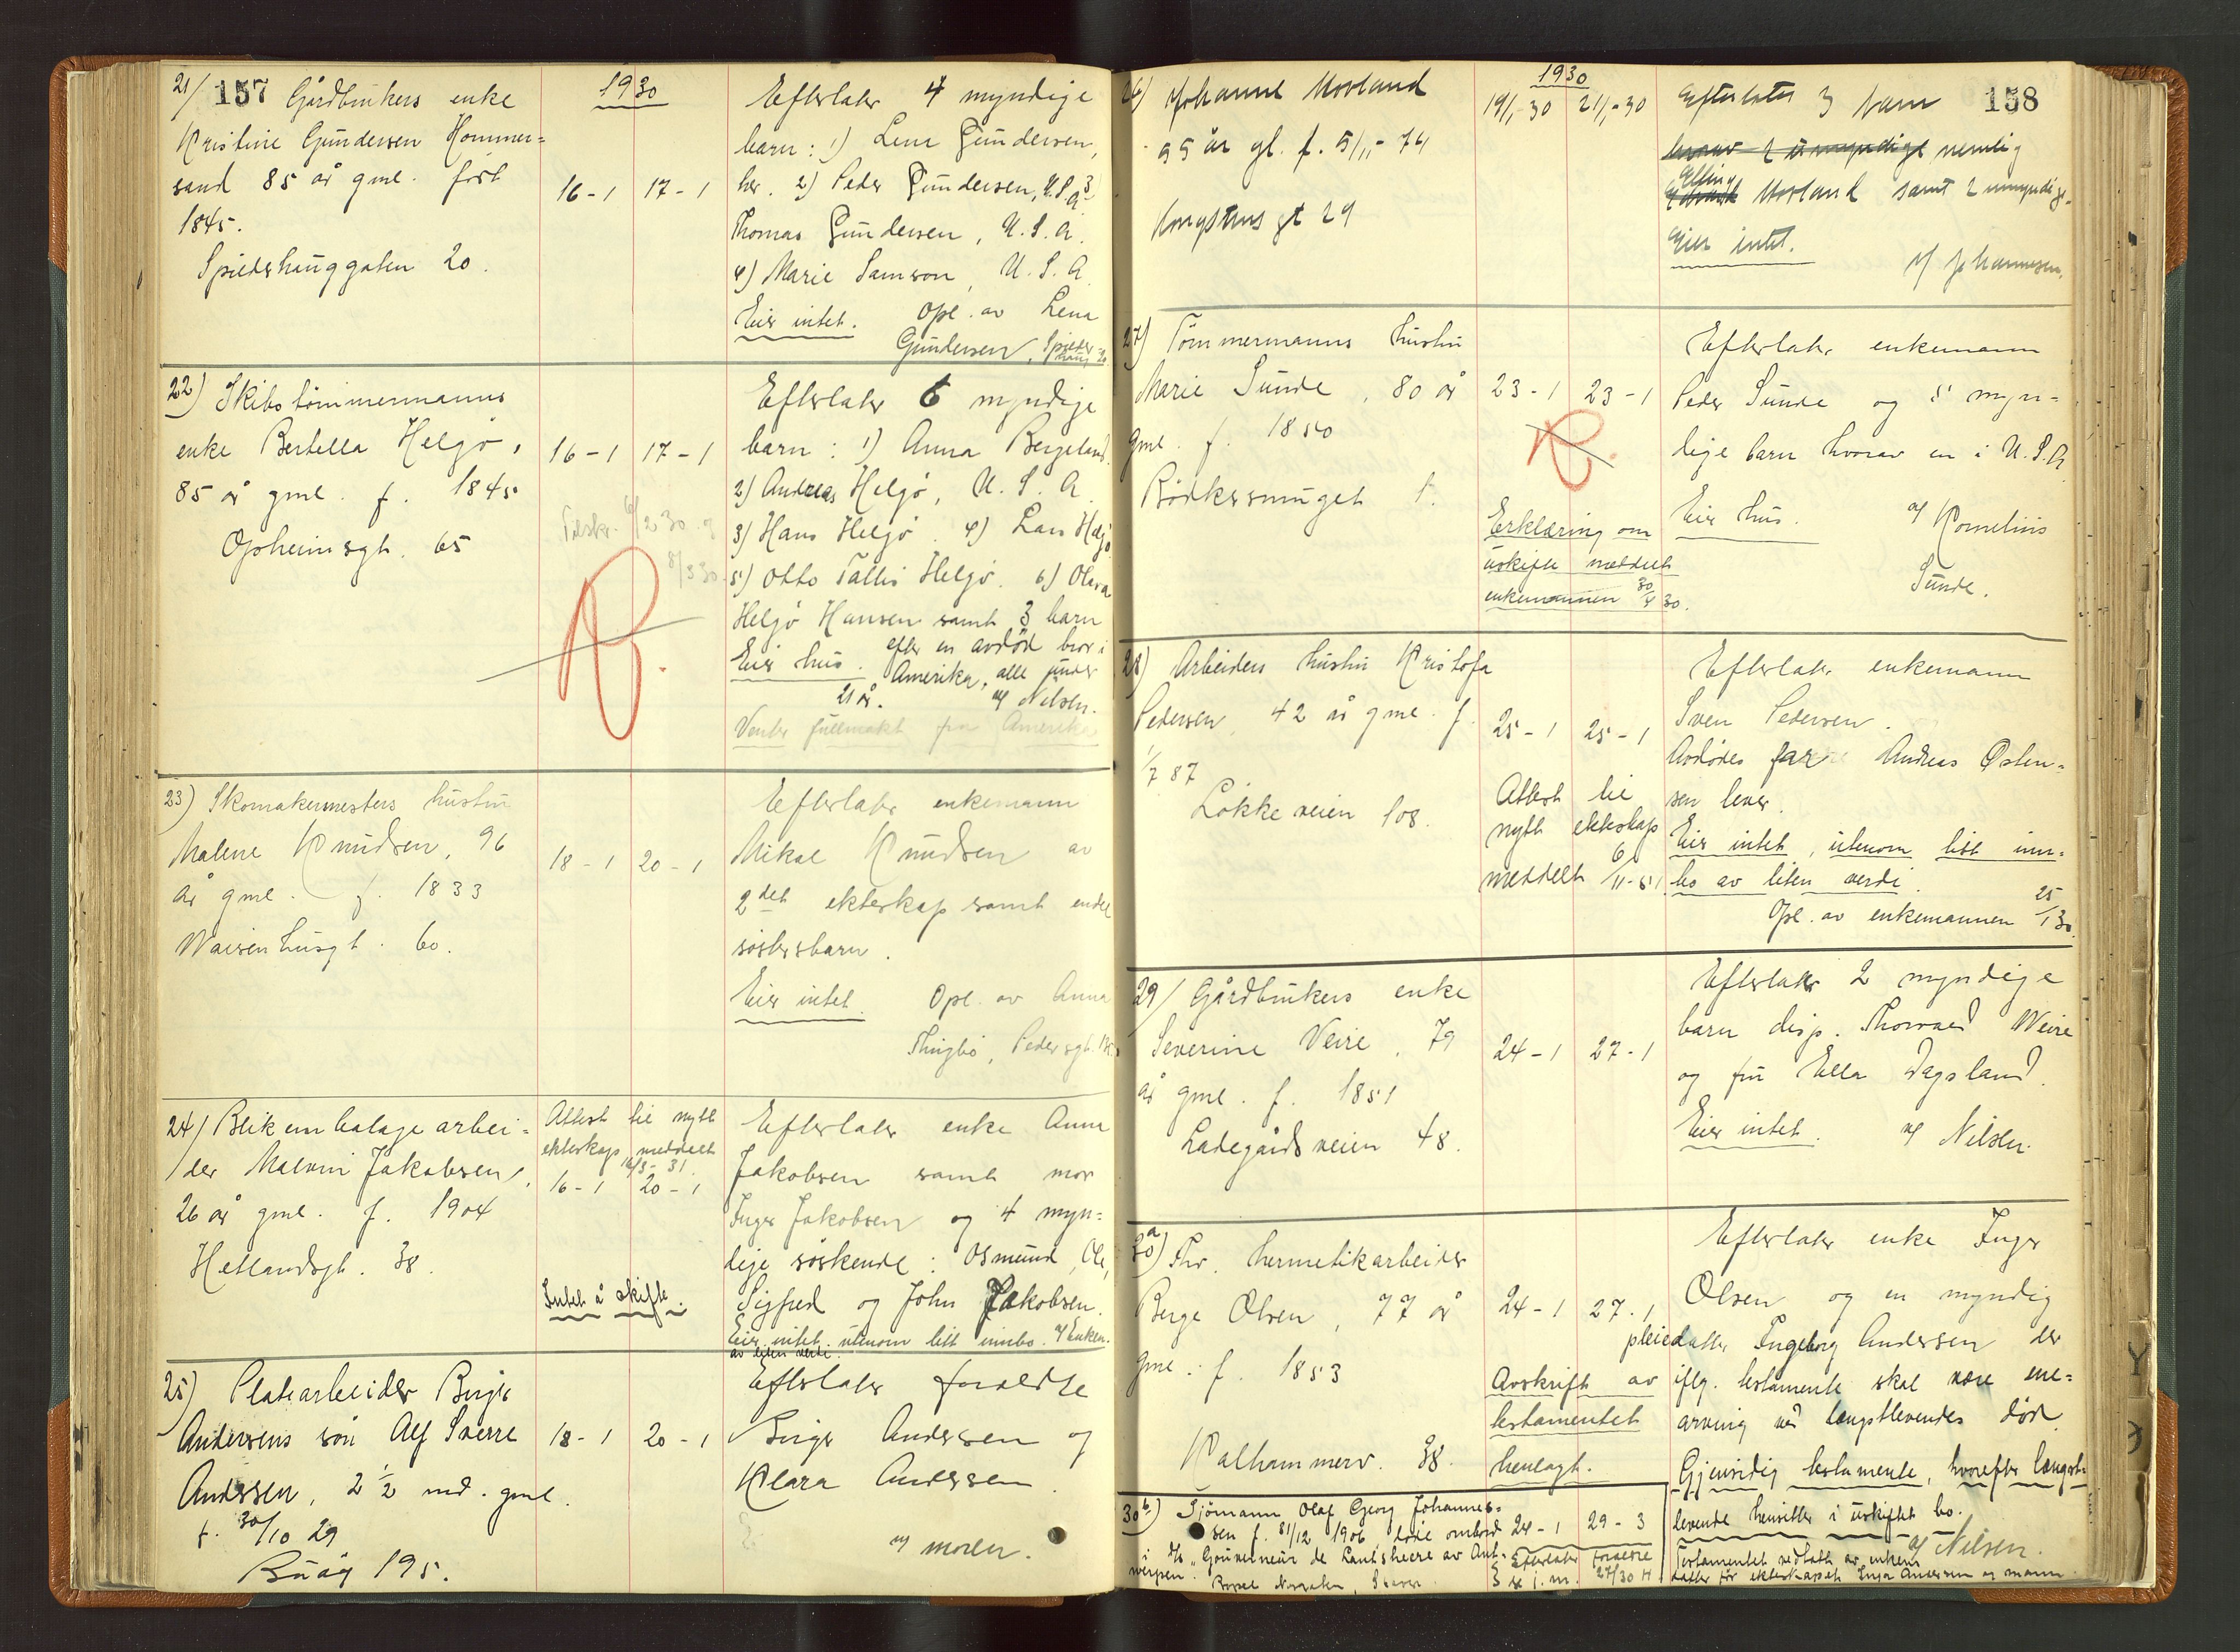 157
1930
21/ Gårdbrukers enke
Kristine Gundersen Hommer=
sand 85 år gml. født
1845.
Spilderhauggaten 20.
16-1 17-1
Efterlater 4 myndige
barn: 1) Lena Gundersen,
her. 2) Peder Gundersen, U.S.A. 3)
Thomas Gundersen, U.S.A.
4) Marie Samson, U.S.A.
Eier intet. Opl. av Lena
Gundersen, Spilder=
haug 20.
22) Skibstømmermanns
enke Bertella Helgø,
85 år gml. f. 1845
Opheimsgt. 65
16-1 17-1
Efterlater 6 myndige
barn: 1) Anna Bergeland
2) Andreas Helgø, U.S.A.
3) Hans Helgø. 4) Lars Helgø
5) Otto Tallis Helgø. 6) Olava
Helgø Hansen samt 3 barn
efter en avdød bror i
Eier hus. Amerika, alle under
21 år. v/ Nilsen.
Venter fullmakt fra Amerika
23) Skomakermesters hustru
Malene Knudsen, 96
år gml. f. 1833
Waisenhusgt. 60.
18-1 20-1
Efterlater enkemann
Mikal Knudsen av
2det ekteskap samt endel
søsters barn.
Eier intet. Opl. av Anna
Thingbø, Pedersgt.
24/ Blikemballage arbei=
der Malvin Jakobsen,
26 år gml. f. 1904
Hetlandsgt. 38.
Attest til nytt
ekteskap meddelt
16/3-31.
16-1 20-1
Intet å skifte.
Efterlater enke Anna
Jakobsen samt mor
Inger Jakobsen og 4 myn=
dige søskende: Osmund, Ole,
Sigfred og John Jakobsen.
Eier intet utenom litt innbo v/ Enken.
av liten verdi.
25) Platearbeider Birger
Andersens søn Alf Sverre
Andersen, 2 1/2 md. gml.
f. 30/10 29
Buøy 195.
18-1 20-1
Efterlater foreldre
Birger Andersen og
Klara Andersen.
v/ moren.
158
1930
26) Johanne Morland
55 år gl. f. 5/11-74
Kongsteins gt 29
19/1-30 21/1-30
Efterlater 3 barn
hvorav 2 umyndige nemlig
Morland samt 2 umyndige.
Eier intet.
v/ Johannesen.
27) Tømmermanns hustru
Marie Sunde, 80 år
gml. f. 1850
Bødkersmuget 1.
23-1 23-1
Erklæring om
uskifte meddelt
enkemannen 30/4 30.
Efterlater enkemann
Peder Sunde og 5 myn=
dige barn hvorav en i U.S.A
Eier hus. v/ Kornelius
Sunde.
28) Arbeiders hustru Kristofa
Pedersen, 42 år gml. f.
1/7 87
Løkkeveien 108.
25-1 25-1
Attest til
nytt ekteskap
meddelt 6/11-51.
Efterlater enkemann
Sven Pedersen.
Avdødes far Andreas Østen=
sen lever.
Eier intet, utenom litt inn=
bo av liten verdi.
Opl. av enkemannen 25/1 30.
29/ Gårdbrukers enke
Severine Veire, 79
år gml. f. 1851
Ladegårdsveien 48.
24-1 27-1
Efterlater 2 myndige
barn disp. Thorvald Weire
og fru Ella Dagsland.
Eier intet. v/ Nilsen.
30a) Fhv. hermetikarbeider
Berge Olsen, 77 år
gml. f. 1853
Kalhammerv. 38.
24-1 27-1
Avskrift av
testamentet
henlagt.
Efterlater enke Inger
Olsen og en myndig
pleiedatter Ingeborg Andersen der
iflg. testamente skal være ene=
arving ved længstlevendes død.
Gjensidig testamente, hvorefter længst=
levende hensitter i uskiftet bo.
v/ Nilsen.
Testamentet vedtatt av enkens
datter før ekteskapet Inga Andersen og mann
30b) Sjømann Olaf Georg Johannes=
sen f. 31/12 1906, døde ombord
i D/s "Gouverneur de Lantsheere av Ant=
werpen.
24-1 29-3
Efterlater foreldre